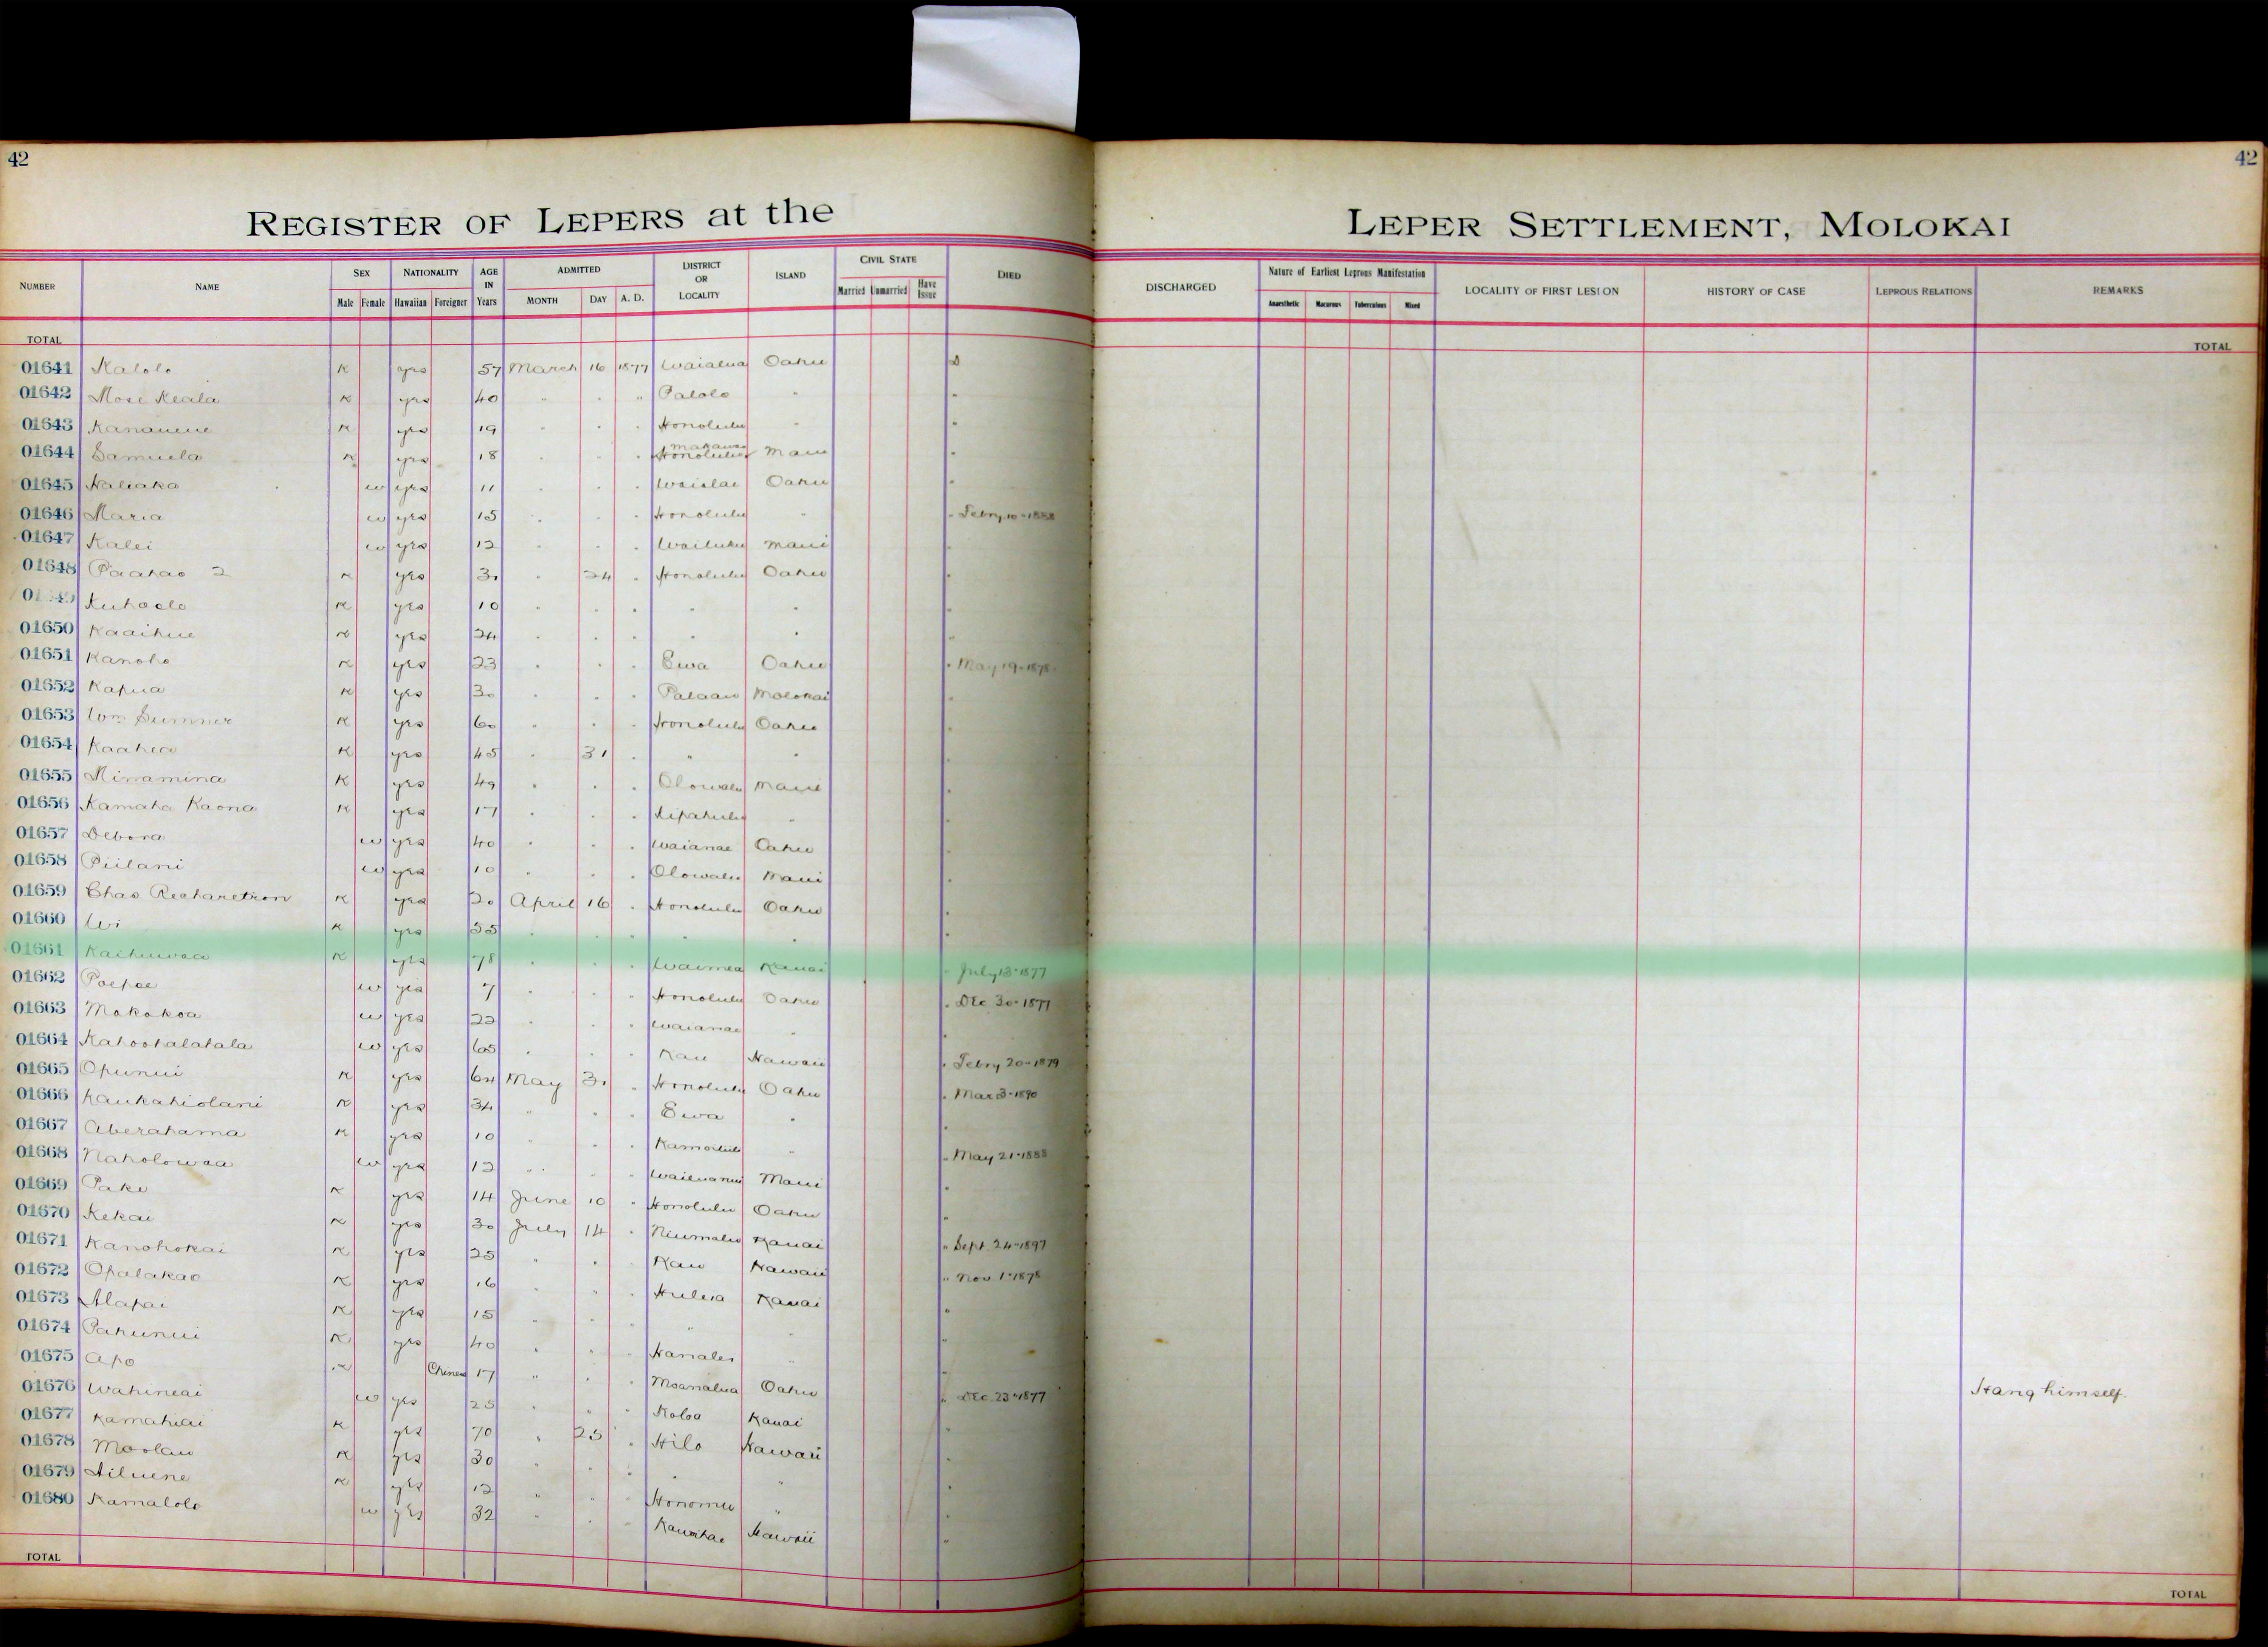 42
42
REGISTER OF LEPERS at the LEPER SETTLEMENT, MOLOKAI
NUMBER NAME SEX NATIONALITY AGE IN Years ADMITTED DISTRICT OR LOCALITY ISLAND CIVIL STATE DIED DISCHARGED Nature of Earliest Leprous Manifestation LOCALITY OF FIRST LESION HISTORY OF CASE LEPROUS RELATIONS REMARKS
Male Female Hawaiian Foreigner MONTH DAY A. D. Married Unmarried Have Issue Anaesthetic Macurous Tuberculous Mixed
TOTAL TOTAL
01641 Kalolo K yes 57 March 16 1877 Waialua Oahu D
01642 Mose Keala K yes 40 " " " Palolo " "
01643 K yes 19 " " " Honolulu " "
01644 Samuela K yes 18 " " " Makawao Honolulu Maui "
01645 Naliaka w yes 11 " " " Waialae Oahu "
01646 Maria w yes 15 " " " Honolulu " " Febry. 10-1888
01647 Kalei w yes 12 " " " Wailuku Maui "
01648 Paahao 2 K yes 30 " 24 " Honolulu Oahu "
Kuhaelo K yes 10 " " " " " "
01650 Kaaihue K yes 24 " " " " " "
01651 Kanoho K yes 23 " " " Ewa Oahu " May 19-1878
01652 Kapua K yes 30 " " " Palaau Molokai "
01653 Wm. Sumner K yes 60 " " " Honolulu Oahu "
01654 Kaahea K yes 45 " 31 " " " "
01655 Minamina K yes 49 " " " Olowalu Maui "
01656 Kamaha Kaona K yes 17 " " " Kipahulu " "
01657 Debora w yes 40 " " " Waianae Oahu "
01658 Piilani w yes 10 " " " Olowalu Maui "
01659 Chas Recharetson K yes 20 April 16 " Honolulu Oahu "
01660 Wi K yes 35 " " " " " "
01661 Kaihuwaa K yes 78 " " " Waimea Kauai " July 13-1877
01662 Poepoe w yes 7 " " " Honolulu Oahu " Dec. 30-1877
01663 Makakoa w yes 22 " " " Waianae " "
01664 Kahoohalahala w yes 65 " " " Kau Hawaii " Febry 20-1879
01665 Opunui K yes 64 May 31 " Honolulu Oahu " Mar 3-1890
01666 Kaukahiolani K yes 34 " " " Ewa " "
01667 Aberahama K yes 10 " " " Kamoiliili " " May 21-1888
01668 Naholowaa w yes 12 " " " Wailuanui Maui "
01669 Pake K yes 14 June 10 " Honolulu Oahu "
01670 Kekai K yes 30 July 14 " Niumalu Kauai " Sept. 24-1897
01671 Kanohokai K yes 25 " " " Kau Hawaii " Nov. 1-1878
01672 Opalakao K yes 16 " " " Huleia Kauai "
01673 Alapai K yes 15 " " " " " "
01674 Pahunui K yes 40 " " " Hanalei " "
01675 Apo K Chinese 17 " " " Moanalua Oahu " Dec. 23-1877 Hang himself.
01676 Wahineai w yes 25 " " " Koloa Kauai "
01677 Kamahiai K yes 70 " 25 " Hilo Hawaii "
01678 Moolau K yes 30 " " " " " "
01679 Hiluene K yes 12 " " " Honomu " "
01680 Kamalolo w yes 32 " " " Kawaihae Hawaii "
TOTAL TOTAL